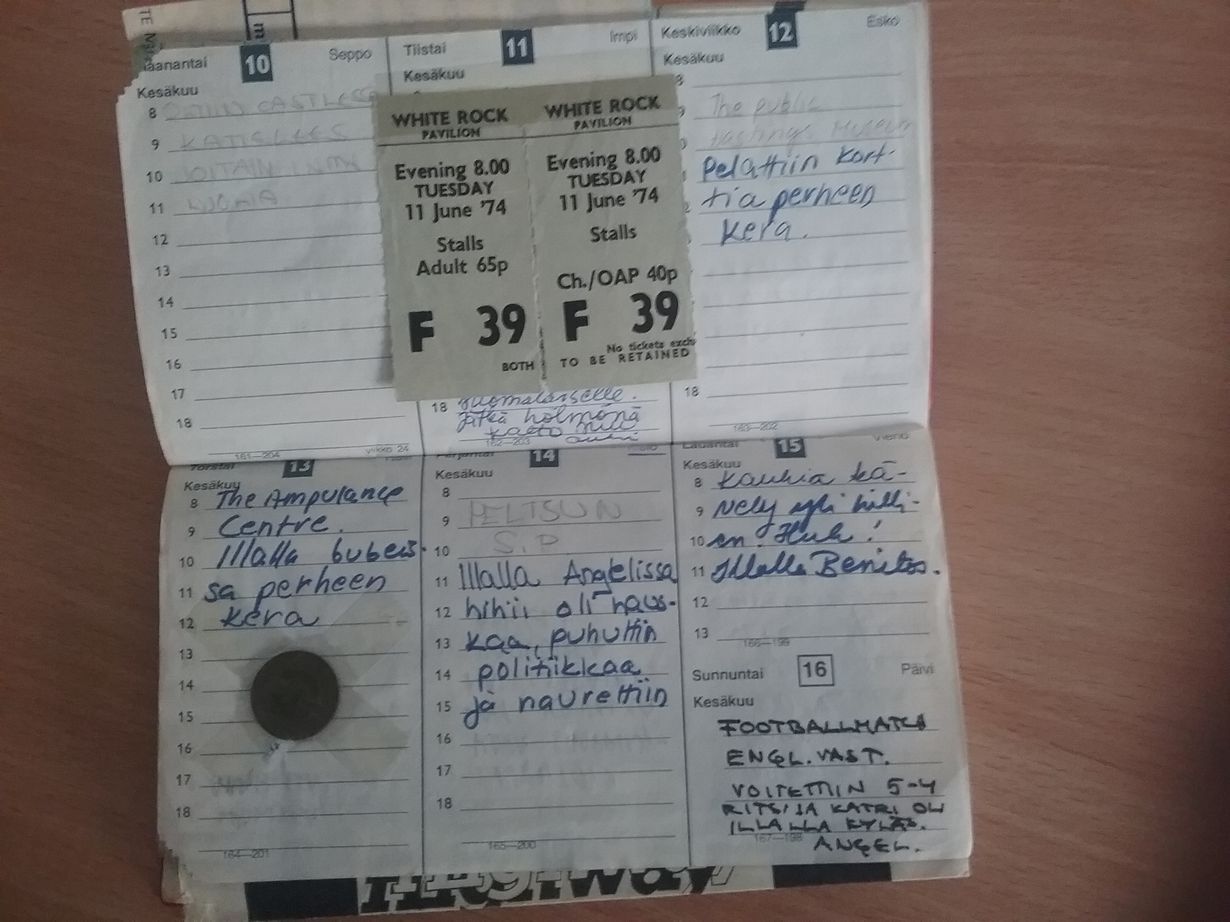 10
Seppo
Kesäkuu
8
9
10
11
12
13
14
15
16
17
18
161—204
viikko 24
Tiistai
11
Impi
Kesäkuu
WHITE ROCK
PAVILION
Evening 8.00
TUESDAY
11 June '74
Stalls
Adult 65p
F 39
BOTH
WHITE ROCK
PAVILION
Evening 8.00
TUESDAY
11 June '74
Stalls
Ch./OAP 40p
F 39
No tickets exch
TO BE RETAINED
18 suomalaiselle.
hölmönä
162—203
Keskiviikko
12
Esko
Kesäkuu
8
9 The public
Hastings Museum
Pelattiin kort-
tia perheen
kera.
18
163—202
Torstai
13
Kesäkuu
8 The Ampulance
9 Centre.
10 Illalla
11 sa perheen
12 kera
13
14
15
16
17
18
164—201
Perjantai
14
Kesäkuu
8
9
10 S.P
11 Illalla Angelissa
12 hihii oli haus-
13 kaa, puhuttiin
14 politiikkaa
15 ja naurettiin
16
17
18
165—200
Lauantai
15
Vieno
Kesäkuu
8 Kauhia kä-
9 vely yli hilli-
10 en. Huh!
11 Illalla Benitos.
12
13
166—199
Sunnuntai
16
Päivi
Kesäkuu
FOOTBALLMATCH
ENGL. VAST.
VOITETTIIN 5-4
RITSI JA KATRI OLI
ILLALLA KYLÄS.
ANGEL.
167—198
Highway